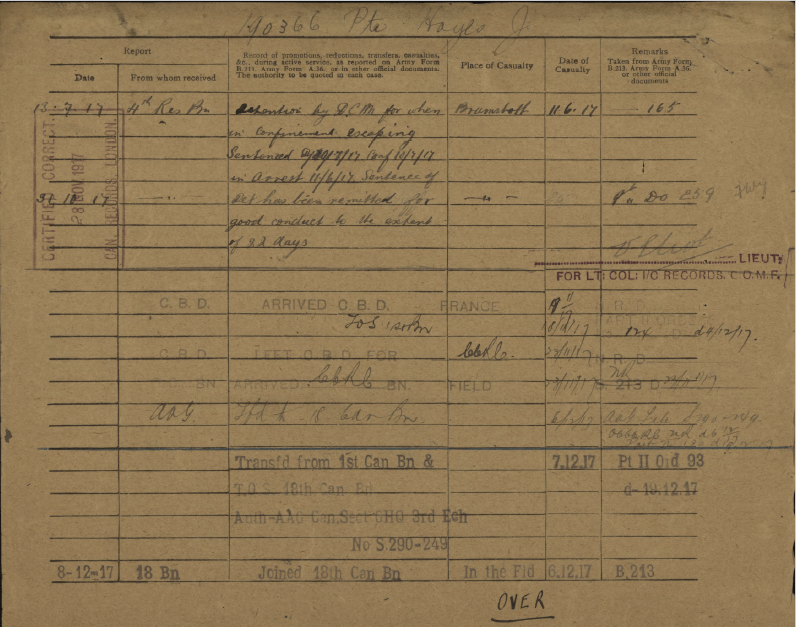 190366 Pte Hayes J.
Report
Date
From whom received
Record of promotions, reductions, transfers, casualties,
&c., during active service, as reported on Army Form
B.213, Army Form A.36, or in other official documents.
The authority to be quoted in each case.
Place of Casualty
Date of
Casualty
Remarks
Taken from Army Form
B.213, Army Form A.36,
or other official
documents
13-7-17 4th Res Bn detention by D.C.M for when Bramshott 11.6.17 165
in confinement escaping
Sentenced conf 11/7/17
in Arrest 11/6/17. Sentence of
31 10 17 —"— Det has been remitted for —"— Do 259
good conduct to the extent
of 82 days
CERTIFIED CORRECT.
28 NOV. 1917
CAN. RECORDS, LONDON.
LIEUT:
FOR LT: COL: I/C RECORDS. C.O.M.F.
C.B.D. ARRIVED C.B.D. FRANCE
TOS 1st Bn d 9/12/17.
C.B.D. LEFT C.B.D. FOR CCRC. N.R. D.
BN ARRIVED CCRC BN. FIELD B. 213 D
AAG 18 Can Bn
Transfd from 1st Can Bn & 7.12.17 Pt II Ord 93
T.O.S. 18th Can Bn d- 19.12.17
Auth-AAG Can,Sect GHQ 3rd Ech
No S.290-249
8-12-17 18 Bn Joined 18th Can Bn In the Fld 6.12.17 B.213
OVER